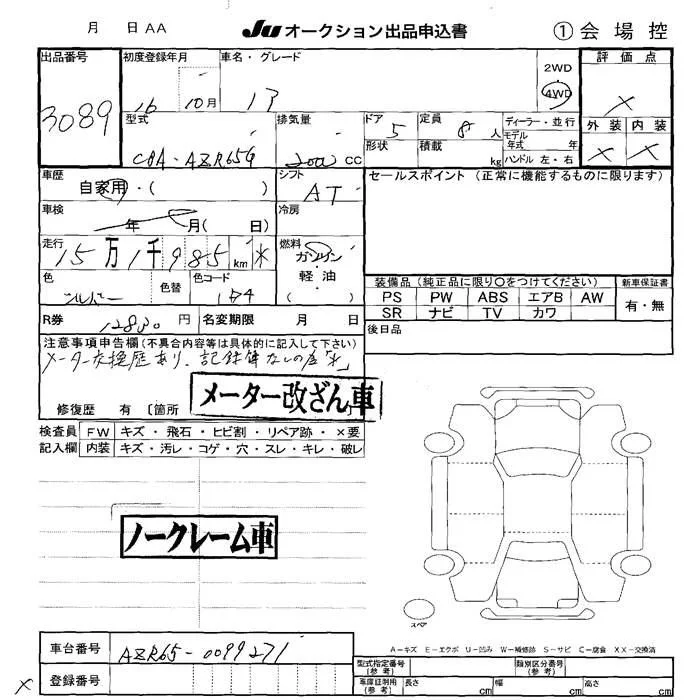 月 日 AA JU オークション出品申込書 ①会場控
出品番号 初度登録年月 車名・グレード 2WD 評価点
3089 16 10月 4WD ×
型式 排気量 ドア 5 定員 8人 ディーラー・並行 外装 内装
CBA-AZR65G 2000 CC 形状 積載 kg モデル年式 年 × ×
ハンドル 左・右
車歴 シフト セールスポイント (正常に機能するものに限ります)
自家用・( ) AT
車検 冷房
年 月( 日)
走行 燃料
15万1千985km * ガソリン
軽・油
色 色替 色コード ( )
シルバー 装備品 (純正品に限り○をつけてください) 新車保証書
PS PW ABS エアB AW 有・無
SR ナビ TV カワ
R券 12830円 名変期限 月 日 後日品
注意事項申告欄(不具合内容等は具体的に記入して下さい)
メーター交換歴あり、記録簿なしの為「*」
メーター改ざん車
修復歴 有 〔箇所
検査員 FW キズ・飛石・ヒビ割・リペア跡・×要
記入欄 内装 キズ・汚レ・コゲ・穴・スレ・キレ・破レ
ノークレーム車
スペア
A-キズ E-エクボ U-凹み W-補修跡 S-サビ C-腐食 XX-交換済
車台番号 AZR65-0099271 型式指定番号(参考) 類別区分番号(参考)
× 登録番号 車庫証明用(参考) 長さ cm 幅 cm 高さ cm